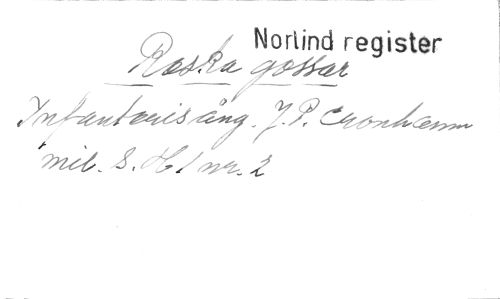 Norlind register
Raska gossar
Infanterisång. J. P. Cronhamn
mil. S. H 1 nr. 2